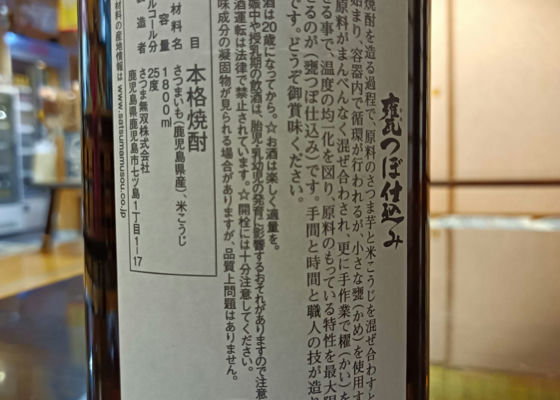 甕つぼ仕込み
焼酎を造る過程で、原料のさつま芋と米こうじを混ぜ合わすと
始まり、容器内で循環が行われるが、小さな甕(かめ)を使用す
原料がまんべんなく混ぜ合わされ、更に手作業で櫂(かい)を
る事で、温度の均一化を図り、原料のもっている特性を最大限
きるのが(甕つぼ仕込み)です。手間と時間と職人の技が造り
です。どうぞ御賞味ください。
酒は20歳になってから。☆お酒は楽しく適量を。
娠中や授乳期の飲酒は、胎児・乳幼児の発育に影響するおそれがありますので注意
酒運転は法律で禁止されています。☆開栓には十分注意してください。
味成分の凝固物が見られる場合がありますが、品質上問題はありません。
目 本格焼酎
材料名 さつまいも(鹿児島県産)、米こうじ
容量 1800ml
ルコール分 25度
造者 さつま無双株式会社
鹿児島県鹿児島市七ツ島1丁目1-17
材料の産地情報は www.satsumamusou.co.jp